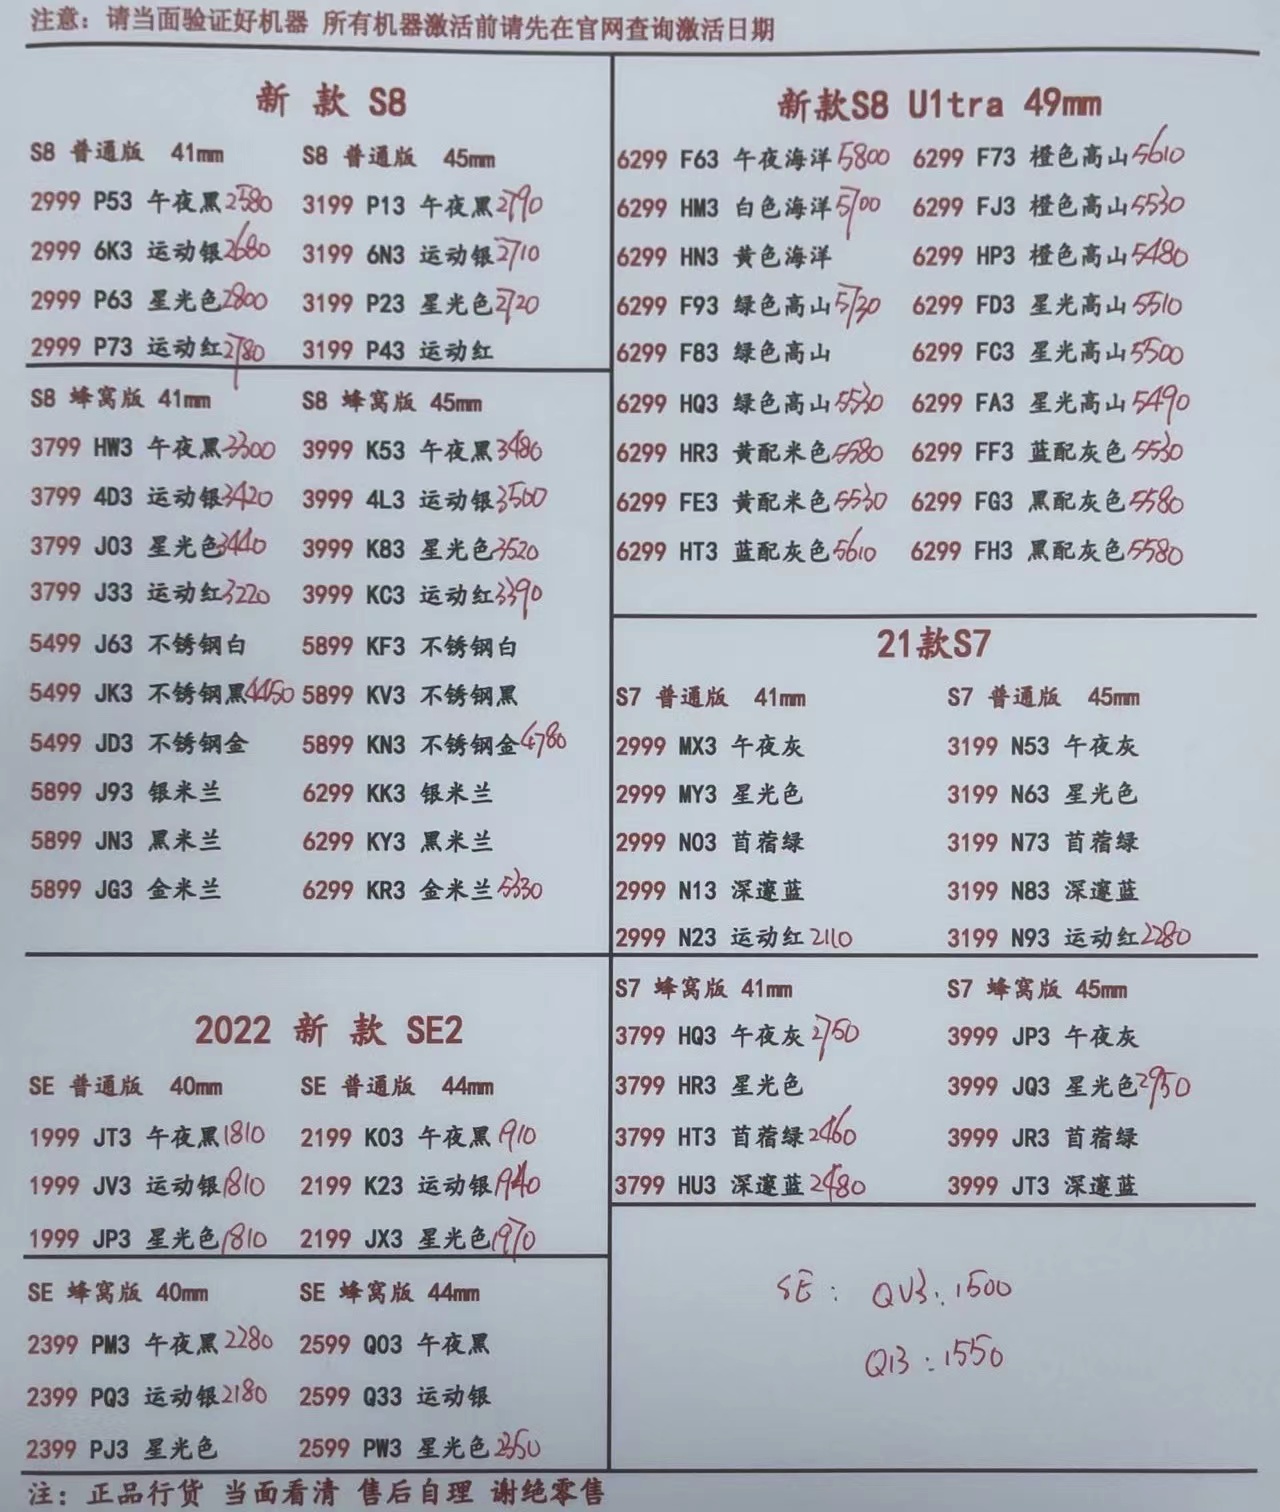 注意：请当面验证好机器 所有机器激活前请先在官网查询激活日期
新 款 S8
S8 普通版 41mm S8 普通版 45mm
2999 P53 午夜黑 2580 3199 P13 午夜黑 2790
2999 6K3 运动银 2680 3199 6N3 运动银 2710
2999 P63 星光色 2800 3199 P23 星光色 2720
2999 P73 运动红 2780 3199 P43 运动红
S8 蜂窝版 41mm S8 蜂窝版 45mm
3799 HW3 午夜黑 3300 3999 K53 午夜黑 3480
3799 4D3 运动银 3420 3999 4L3 运动银 3500
3799 J03 星光色 3440 3999 K83 星光色 3520
3799 J33 运动红 3220 3999 KC3 运动红 3390
5499 J63 不锈钢白 5899 KF3 不锈钢白
5499 JK3 不锈钢黑 4450 5899 KV3 不锈钢黑
5499 JD3 不锈钢金 5899 KN3 不锈钢金 4780
5899 J93 银米兰 6299 KK3 银米兰
5899 JN3 黑米兰 6299 KY3 黑米兰
5899 JG3 金米兰 6299 KR3 金米兰 5330
2022 新 款 SE2
SE 普通版 40mm SE 普通版 44mm
1999 JT3 午夜黑 1810 2199 K03 午夜黑 1910
1999 JV3 运动银 1810 2199 K23 运动银 1940
1999 JP3 星光色 1810 2199 JX3 星光色 1970
SE 蜂窝版 40mm SE 蜂窝版 44mm
2399 PM3 午夜黑 2280 2599 Q03 午夜黑
2399 PQ3 运动银 2180 2599 Q33 运动银
2399 PJ3 星光色 2599 PW3 星光色 2350
新款S8 U1tra 49mm
6299 F63 午夜海洋 5800 6299 F73 橙色高山 5610
6299 HM3 白色海洋 5700 6299 FJ3 橙色高山 5530
6299 HN3 黄色海洋 6299 HP3 橙色高山 5480
6299 F93 绿色高山 5730 6299 FD3 星光高山 5510
6299 F83 绿色高山 6299 FC3 星光高山 5500
6299 HQ3 绿色高山 5530 6299 FA3 星光高山 5490
6299 HR3 黄配米色 5580 6299 FF3 蓝配灰色 5530
6299 FE3 黄配米色 5530 6299 FG3 黑配灰色 5580
6299 HT3 蓝配灰色 5610 6299 FH3 黑配灰色 5580
21款S7
S7 普通版 41mm S7 普通版 45mm
2999 MX3 午夜灰 3199 N53 午夜灰
2999 MY3 星光色 3199 N63 星光色
2999 N03 苜蓿绿 3199 N73 苜蓿绿
2999 N13 深邃蓝 3199 N83 深邃蓝
2999 N23 运动红 2110 3199 N93 运动红 2280
S7 蜂窝版 41mm S7 蜂窝版 45mm
3799 HQ3 午夜灰 2750 3999 JP3 午夜灰
3799 HR3 星光色 3999 JQ3 星光色 2950
3799 HT3 苜蓿绿 2460 3999 JR3 苜蓿绿
3799 HU3 深邃蓝 2480 3999 JT3 深邃蓝
SE： QV3：1500
Q13：1550
注：正品行货 当面看清 售后自理 谢绝零售